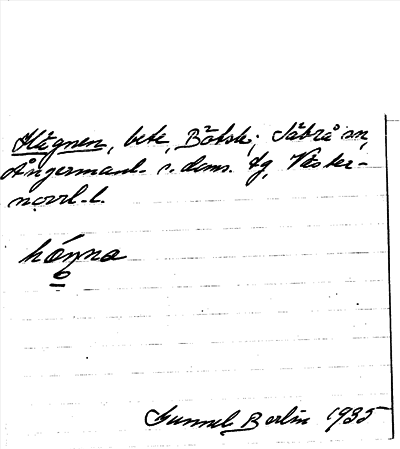 Hägnen, bete, Bölsk; Säbrå sn,
Ångermanl. s. doms. tg, Väster-
norrl. l.
hǫ́ŋna
Gunnel Berlin 1935